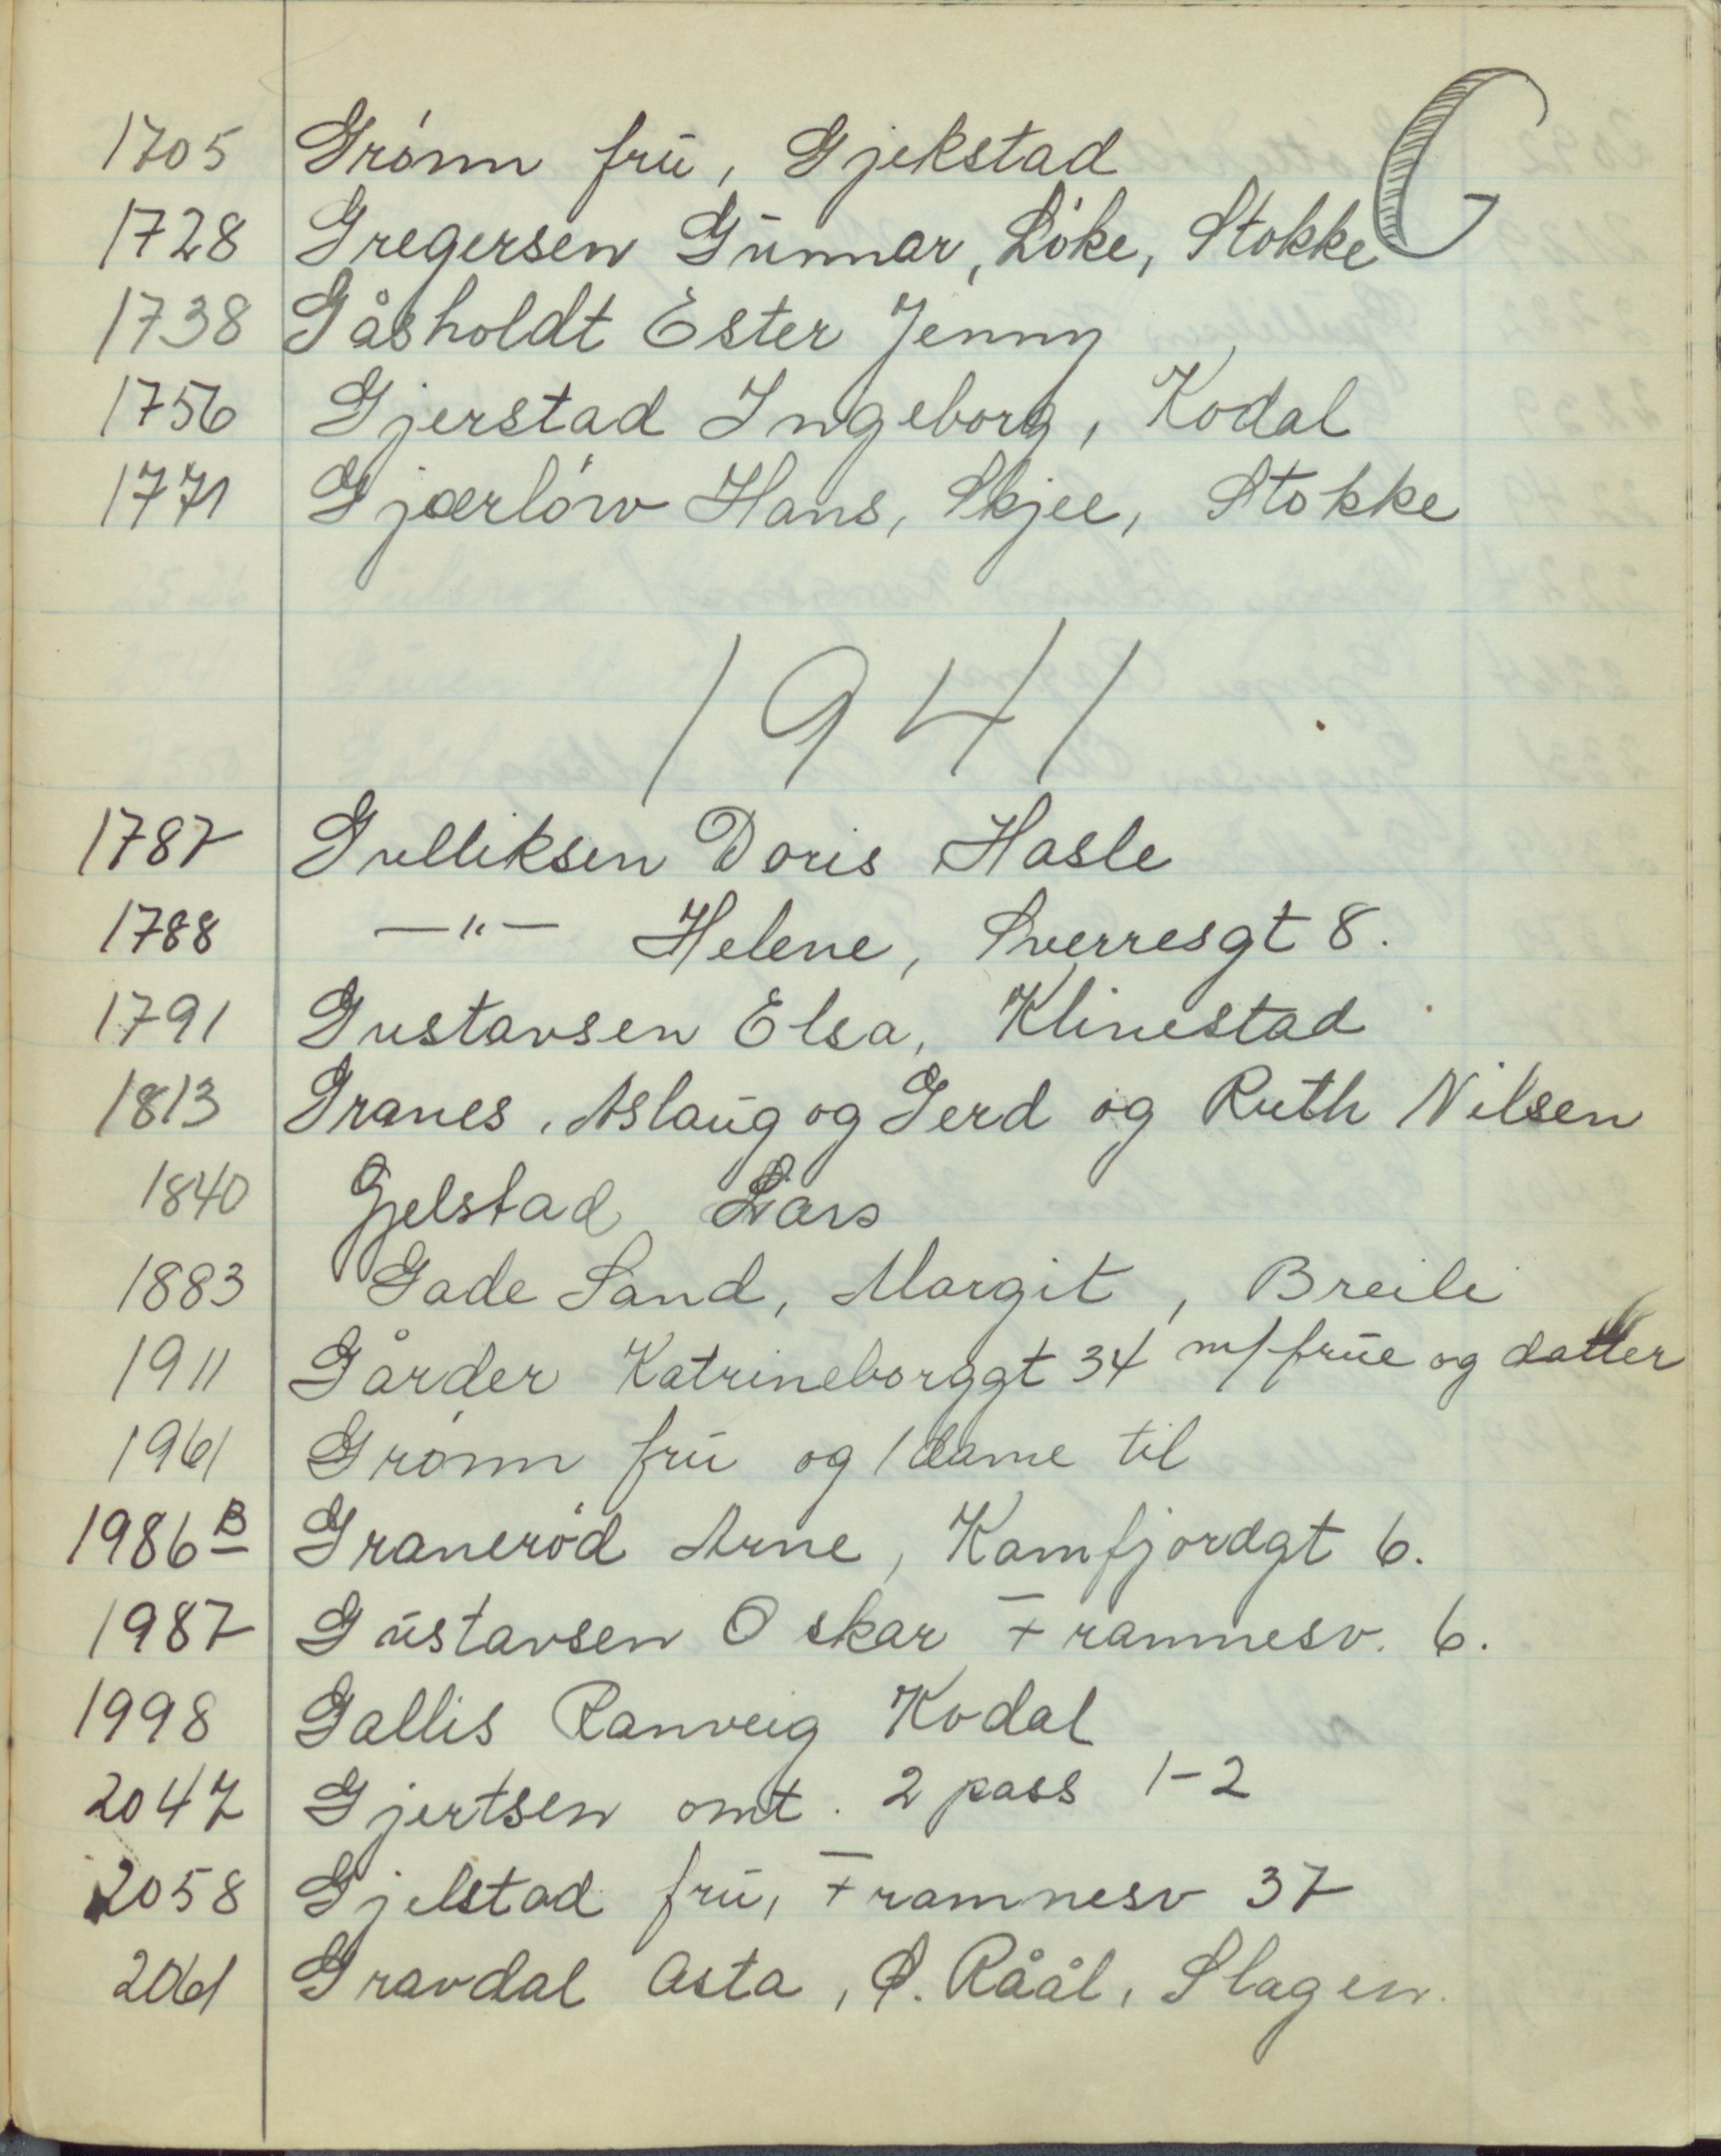 G
1705 Grónn frū, Gjekstad
1728 Gregersen Gūnnar, Lóke, Stokke
1738 Gåsholdt Ester Jenny
1756 Gjerstad Ingeborg, Kodal
1771 Gjærlów Hans, Skjee, Stokke
1941
1787 Gulliksen Doris Hasle
1788 —"— Helene, Sverresgt 8.
1791 Gustavsen Elsa, Klinestad
1813 Granes, Aslaūg og Gerd og Ruth Nilsen
1840 Gjelstad Lars
1883 Gade Sand, Margit, Breili
1911 Gårder Katrineborggt 34 m/frūe og datter
1961 Grónn frū og 1 dame til
1986 B Graneród Arne, Kamfjordgt 6.
1987 Gūstavsen Oskar Framnesv. 6.
1998 Gallis Ranveig Kodal
2047 Gjertsen omt. 2 pass 1-2
2058 Gjelstad frū, Framnesv 37
2061 Gravdal Asta, Ø. Råål, Slagen.